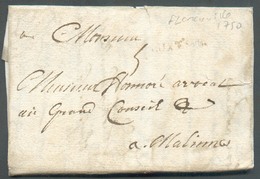 a Monsieur
5
Monsieur Honoré avocat
au Grand Conseil
a Malines
1750